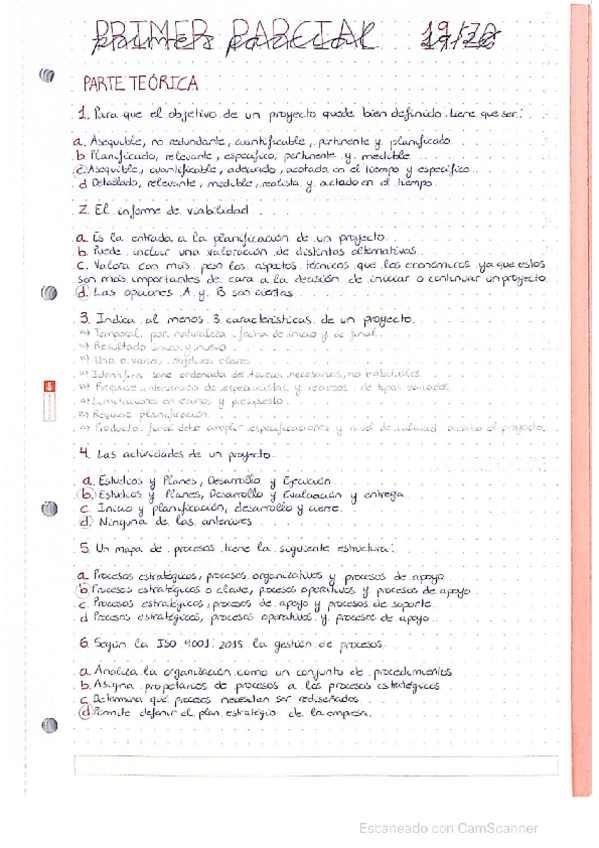 PRIMER PARCIAL 19/20
PARTE TEÓRICA
1. Para que el objetivo de un proyecto quede bien definido tiene que ser:
a. Asequible, no redundante, cuantificable, pertinente y planificado
b. Planificado, relevante, específico, pertinente y medible
c. Asequible, cuantificable, adecuado, acotada en el tiempo y específico
d Detallado, relevante, medible, realista y actado en el tiempo.
2. El informe de viabilidad
a. Es la entrada a la planificación de un proyecto
b. Puede incluir una valoración de distintas alternativas
c. Valora con más peso los aspectos técnicos que los económicos ya que estos
son más importantes de cara a la decisión de iniciar o continuar un proyecto
d. Las opciones A y B son ciertas
3. Indica al menos 3 características de un proyecto
Temporal por naturaleza fecha de inicio y de final
Resultado único y nuevo
Uno o varios objetivos claros
Identifica serie ordenada de tareas necesarias, no habituales
Requiere de especialistas y recursos de tipos variados
Limitaciones en recursos y presupuesto
Requiere planificación
Producto final debe cumplir especificaciones y nivel de calidad el proyecto
4. Las actividades de un proyecto
a. Estudios y Planes, Desarrollo y Ejecución
b. Estudios y Planes, Desarrollo y Evaluación y entrega
c Inicio y planificación, desarrollo y cierre.
d. Ninguna de las anteriores
5. Un mapa de procesos tiene la siguiente estructura:
a Procesos estratégicos, procesos organizativos y procesos de apoyo
b Procesos estratégicos o clave, procesos operativos y procesos de apoyo
c. Procesos estratégicos, procesos de apoyo y procesos de soporte
d Procesos estratégicos, procesos operativos y procesos de apoyo
6. Según la ISO 9001:2015 la gestión de procesos
a. Analiza la organización como un conjunto de procedimientos
b. Asigna propietarios de procesos a los procesos estratégicos
c. Determina qué procesos necesitan ser rediseñados
d Permite definir el plan estratégico de la empresa.
Escaneado con CamScanner